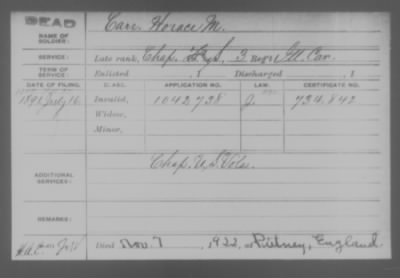 DEAD
Carr, Horace M.
NAME OF
SOLDIER:
SERVICE:
Late rank, Chap. F. & S., 3 Reg't Ill. Cav.
TERM OF
SERVICE:
Enlisted , 1 Discharged , 1
DATE OF FILING. CLASS. APPLICATION NO. LAW. CERTIFICATE NO.
1891 July 16. Invalid, 1042,728 J. 734,842
Widow,
Minor,
ADDITIONAL
SERVICES:
Chap. U. S. Vols.
REMARKS:
Died Nov. 7, 1922, at Putney, England